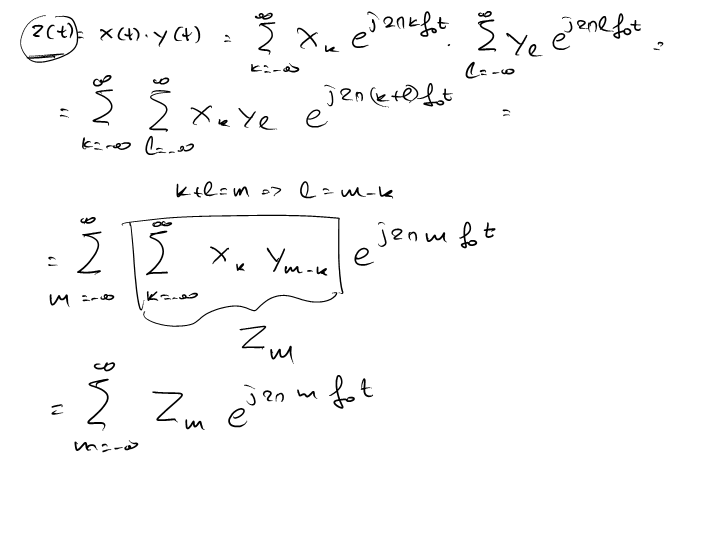 z(t) = x(t) · y(t) = ∑_{k=-∞}^{∞} X_k e^{j2πkf₀t} · ∑_{l=-∞}^{∞} Y_l e^{j2πlf₀t} =
= ∑_{k=-∞}^{∞} ∑_{l=-∞}^{∞} X_k Y_l e^{j2π(k+l)f₀t} =
k+l=m => l=m-k
= ∑_{m=-∞}^{∞} ∑_{k=-∞}^{∞} X_k Y_{m-k} e^{j2πmf₀t}
Z_m
= ∑_{m=-∞}^{∞} Z_m e^{j2πmf₀t}